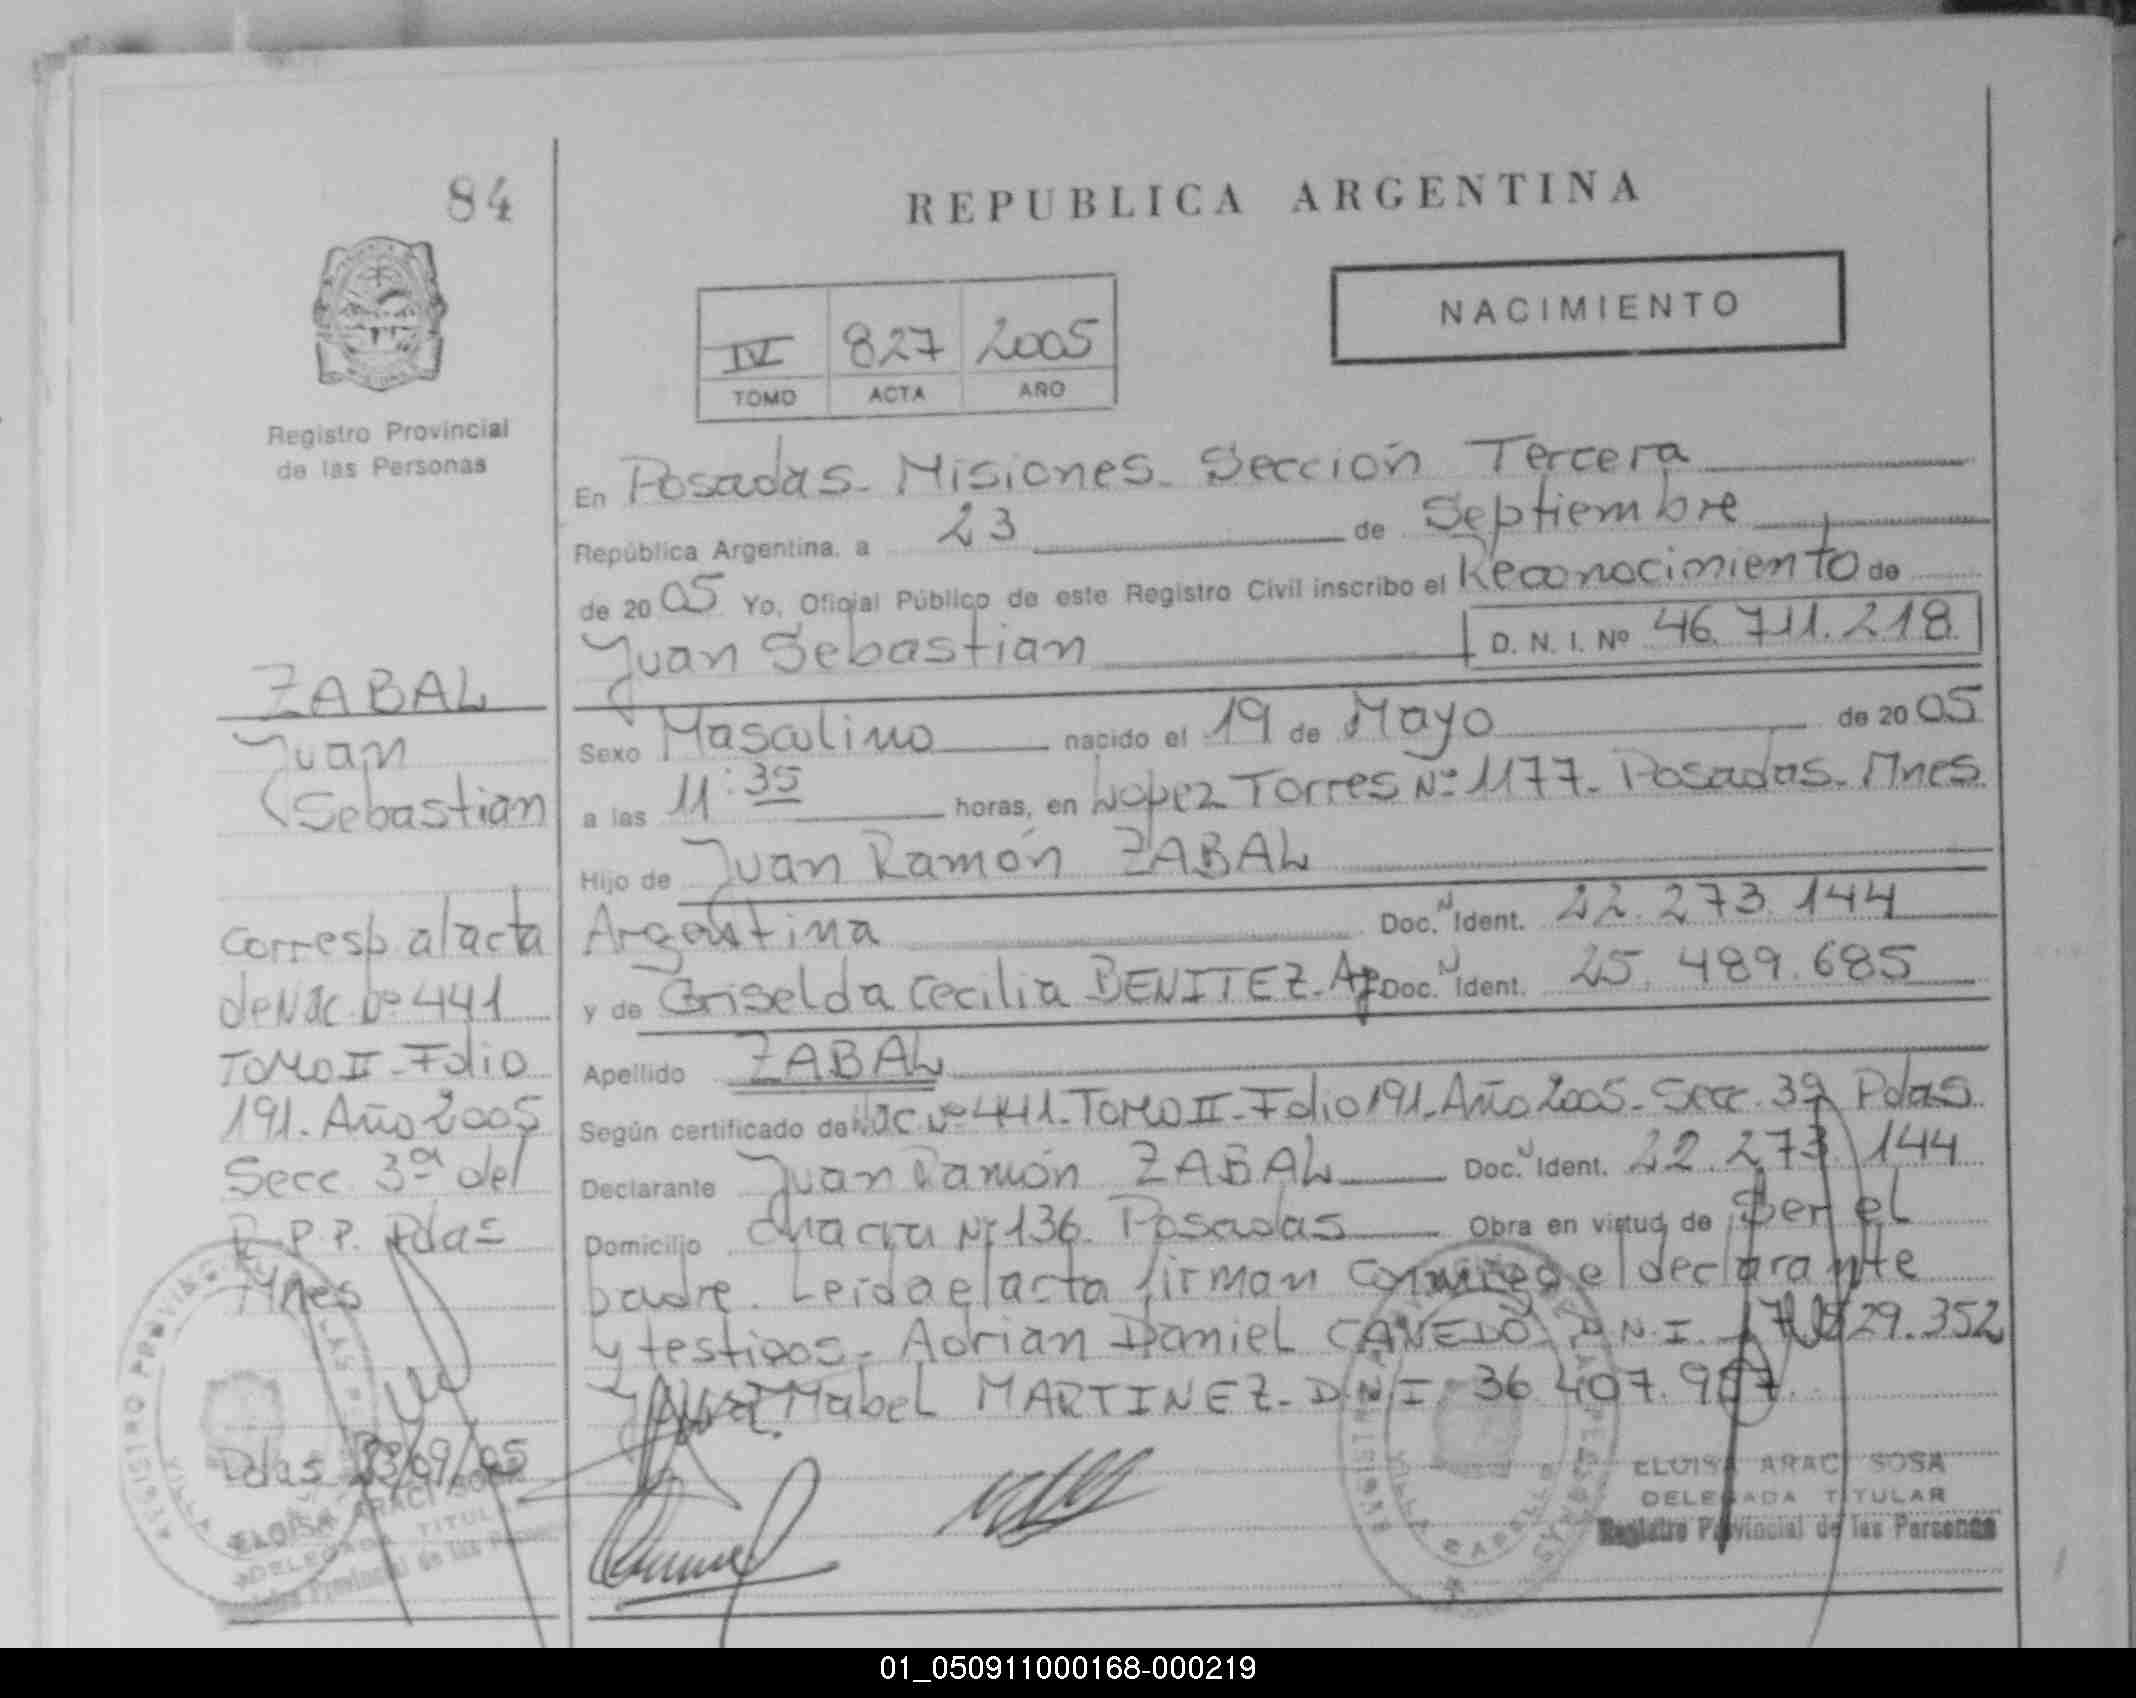 84
REPUBLICA ARGENTINA
NACIMIENTO
IV 827 2005
TOMO ACTA AÑO
Registro Provincial
de las Personas
En Posadas. Misiones. Sección Tercera
República Argentina, a 23 de Septiembre
de 2005 Yo, Oficial Público de este Registro Civil inscribo el Reconocimiento de
Juan Sebastian D. N. I. Nº 46.711.218.
Sexo Masculino nacido el 19 de Mayo de 2005
a las 11:35 horas, en Lopez Torres Nº 1177. Posadas. Mnes.
Hijo de Juan Ramón ZABAL
Argentina Doc. N Ident. 22.273.144
y de Griselda Cecilia BENITEZ. Ag Doc. N Ident. 25.489.685
Apellido ZABAL
Según certificado de Nac. Nº 441. Tomo II. Folio 191. Año 2005. Secc. 3ª Pdas.
Declarante Juan Ramón ZABAL Doc. N Ident. 22.273.144
Domicilio chacra Nº 136. Posadas Obra en virtud de Ser el
padre. Leida el acta firman conmigo el declarante
y testigos. Adrian Daniel CANEDO D.N.I. 29.352
Mabel MARTINEZ. D.N.I. 36.407.
ELOISA ARACI SOSA
DELEGADA TITULAR
Registro Provincial de las Personas
ZABAL
Juan
Sebastian
Corresp al acta
de Nac. Nº 441
Tomo II. Folio
191. Año 2005
Secc. 3ª del
R.P.P. Pdas
Mnes
Pdas 23/09/05
ELOISA ARACI SOSA
DELEGADA TITULAR
Registro Provincial de las Personas
01_050911000168-000219